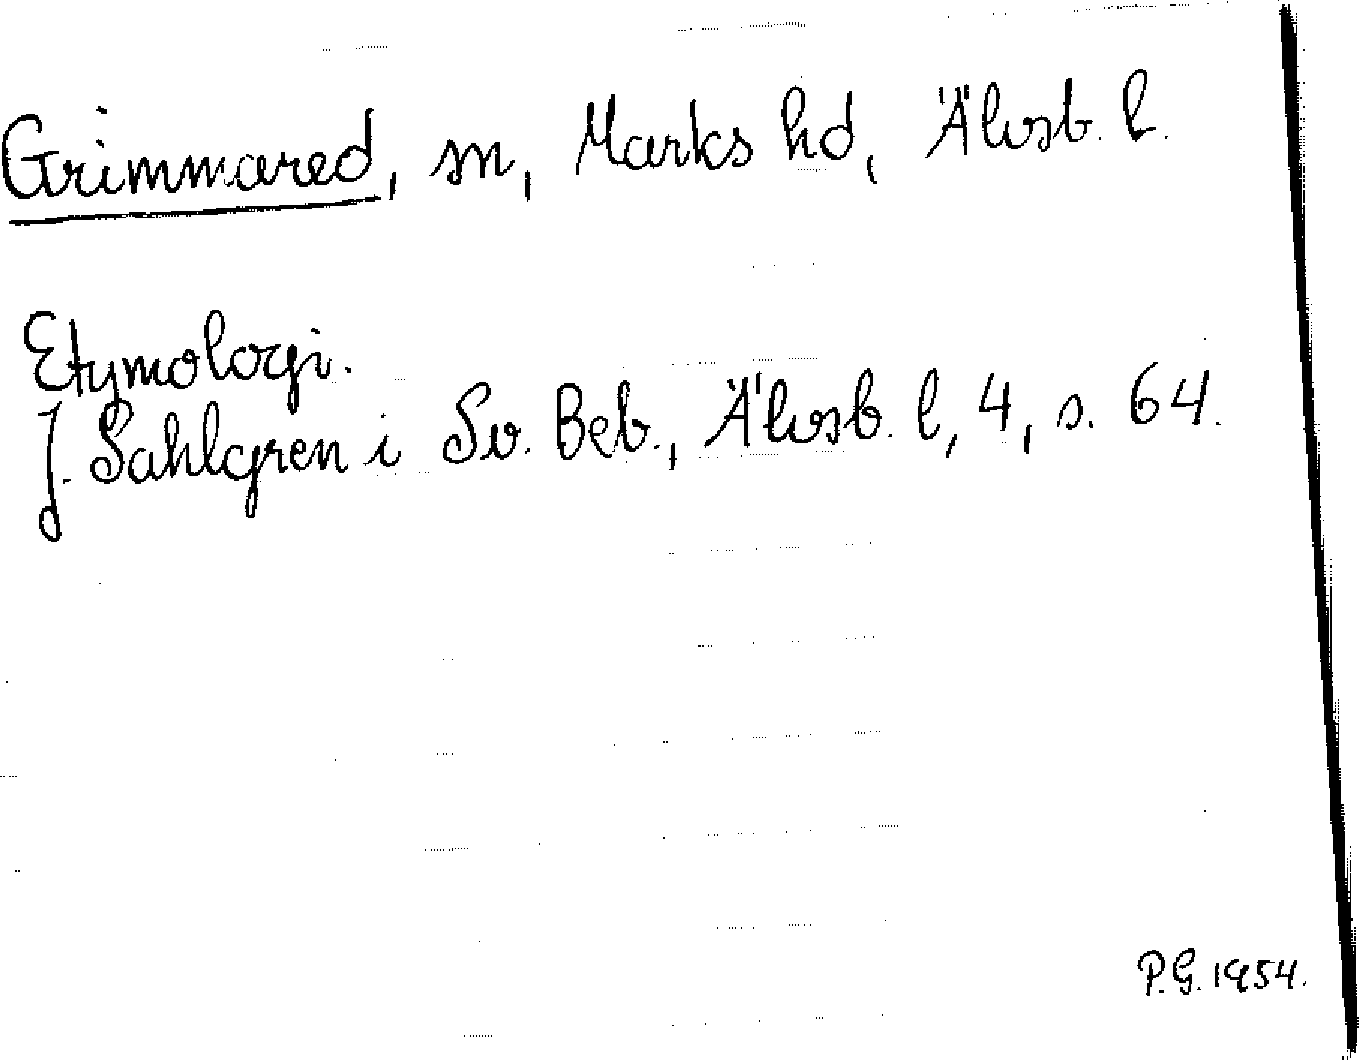 Grimmared, sn, Marks hd, Älvsb. l.
Etymologi.
J. Sahlgren i Sv. Beb., Älvsb. l, 4, s. 64.
P.G. 1954.